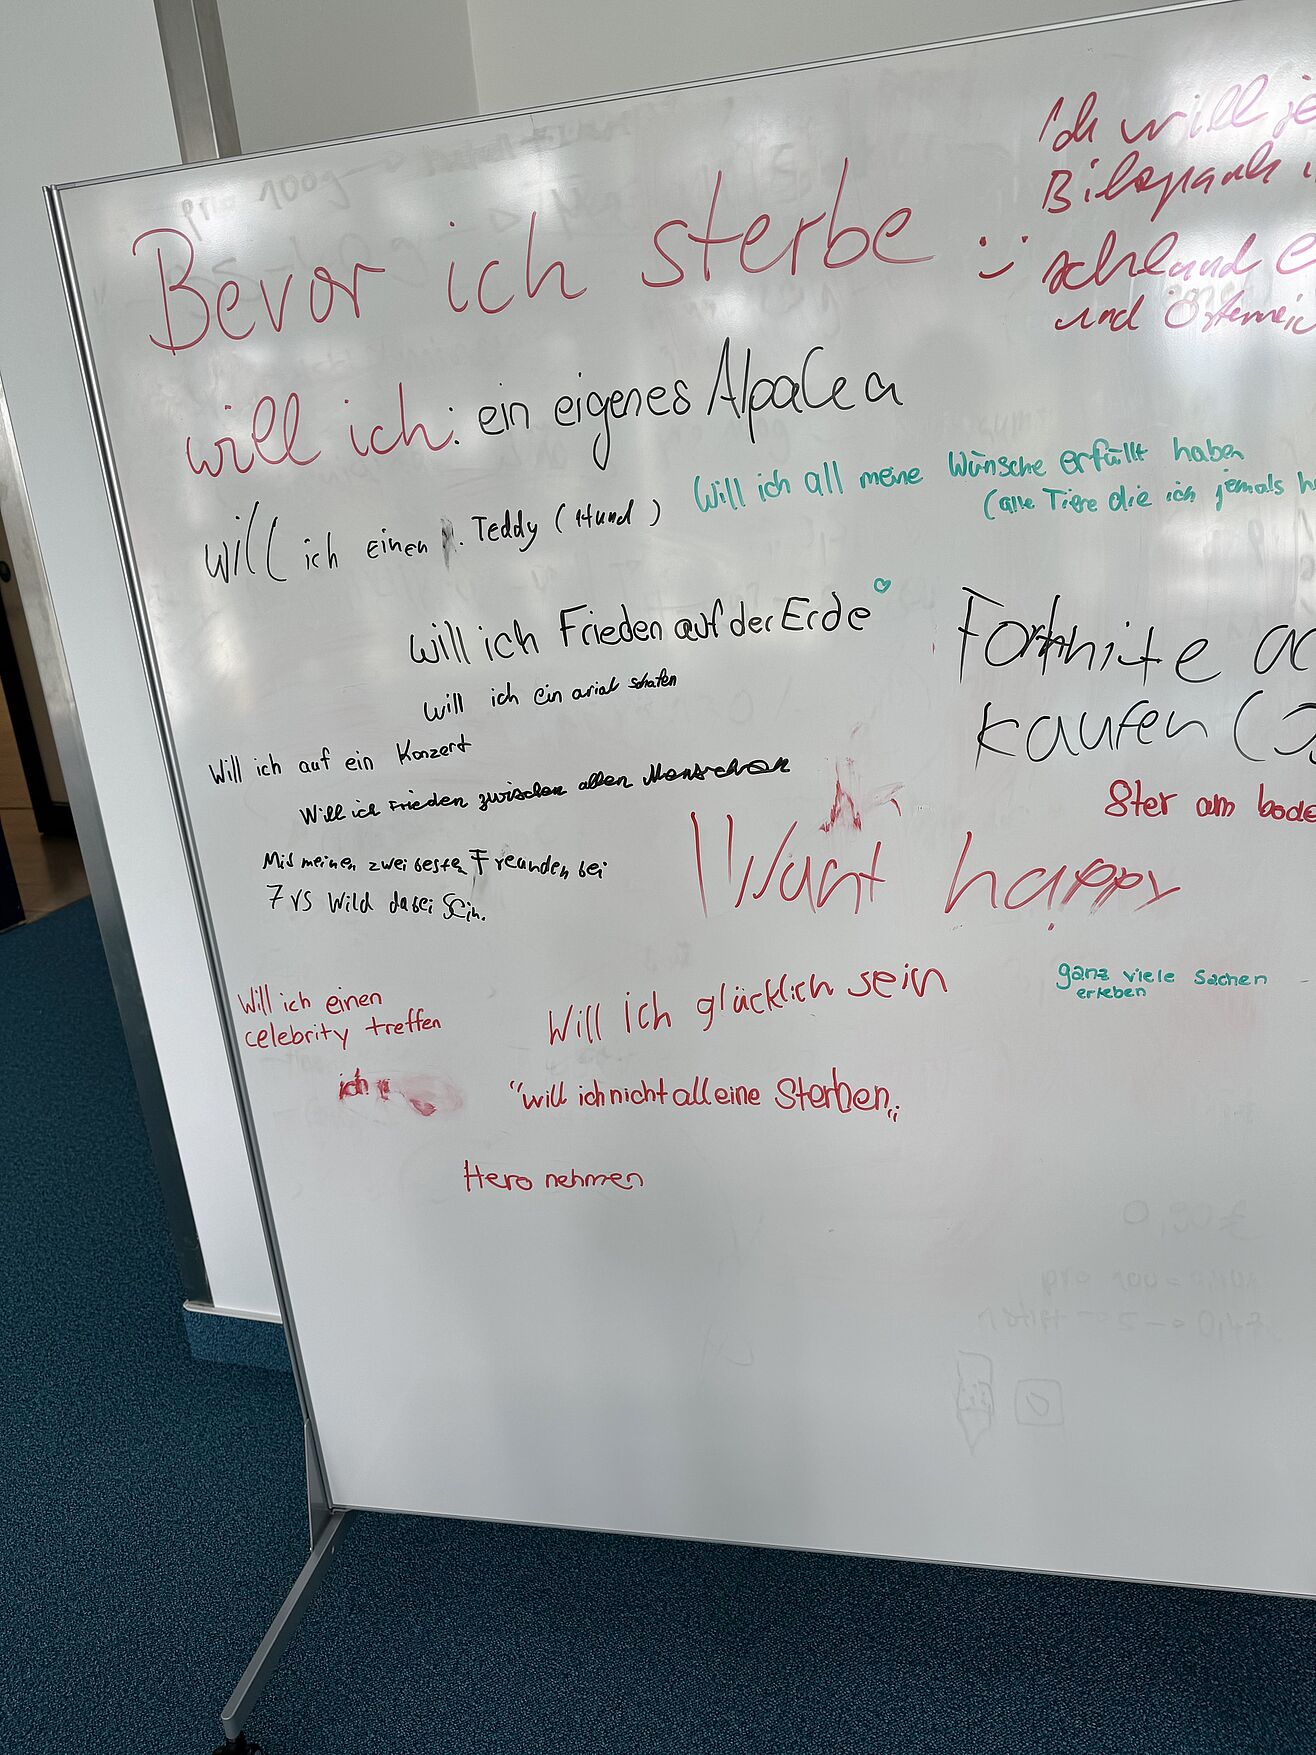 Bevor ich sterbe :)
will ich: ein eigenes Alpaca
Ich will
Bikepark
und Österreic
Will ich all meine Wünsche erfüllt haben
(alle Tiere die ich jemals
Will ich einen Teddy (Hund)
Will ich Frieden auf der Erde
Will ich ein arial schafen
Fortnite ac
kaufen (
Will ich auf ein Konzert
Will ich Frieden zwischen allen Menschen
8ter am bode
Mis meinen zwei beste Freunden bei
7 vs Wild dabei sein.
I Want happy
Will ich einen
celebrity treffen
Will ich glücklich sein
ganz viele Sachen
erleben
ich
"will ich nicht alleine Sterben"
Hero nehmen